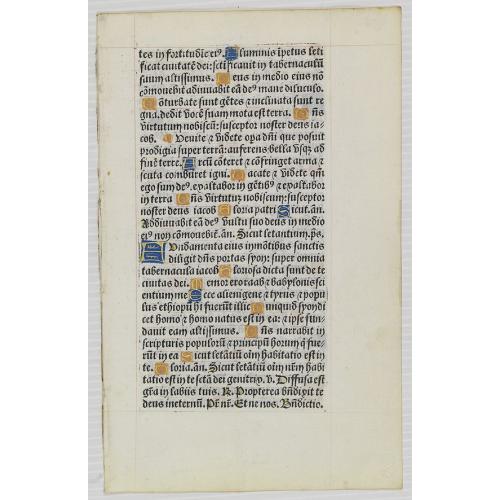 tes in fortitudine eiꝰ. Fluminis īpetus leti
ficat ciuitatē dei: sctificauit in tabernaculū
suum altissimus. Deus in medio eius nō
cōmouebit᷑ adiuuabit eā deꝰ mane diluculo.
Cōturbate sunt gētes ⁊ inclinata sunt re
gna. dedit vocē suam mota est terra. Dn̄s
virtutum nobiscū: susceptor noster deus ia-
cob. Venite ⁊ videte opa dn̄i que posuit
prodigia super terrā: auferens bella vsqꝫ ad
finē terre. Arcū cōteret ⁊ cōfringet arma ⁊
scuta comburet igni. Vacate ⁊ videte qm̄
ego sum deꝰ. exaltabor in gētibꝰ ⁊ exaltabor
in terra Dn̄s virtutum nobiscum: susceptor
noster deus iacob Gloria patri Sicut. an̄.
Adiuuabit eā deꝰ vultu suo deus in medio
eiꝰ non cōmouebit᷑. an̄. Sicut letantium. ps̄.
Fundamenta eius in mōtibus sanctis
diligit dn̄s portas syon: super omnia
tabernacula iacob Gloriosa dicta sunt de te
ciuitas dei. Memor ero raab ⁊ babylonis sci
entium me Ecce alienigene ⁊ tyrus ⁊ popu
lus ethiopū hi fuerūt illic Nunquid syon di
cet homo ⁊ homo natus est in ea: ⁊ ipse fun-
dauit eam altissimus. Dn̄s narrabit in
scripturis populorū ⁊ principū horum q̄ fue-
rūt in ea Sicut letātiū oīm habitatio est in
te. Gloria. an̄. Sicut letātiū oīm nr̄m habi
tatio est in te sctā dei genitrix. v. Diffusa est
gr̄a in labiis tuis. R. Propterea bn̄dixit te
deus in eternū. Pr̄ nr̄. Et ne nos. Bn̄dictio.